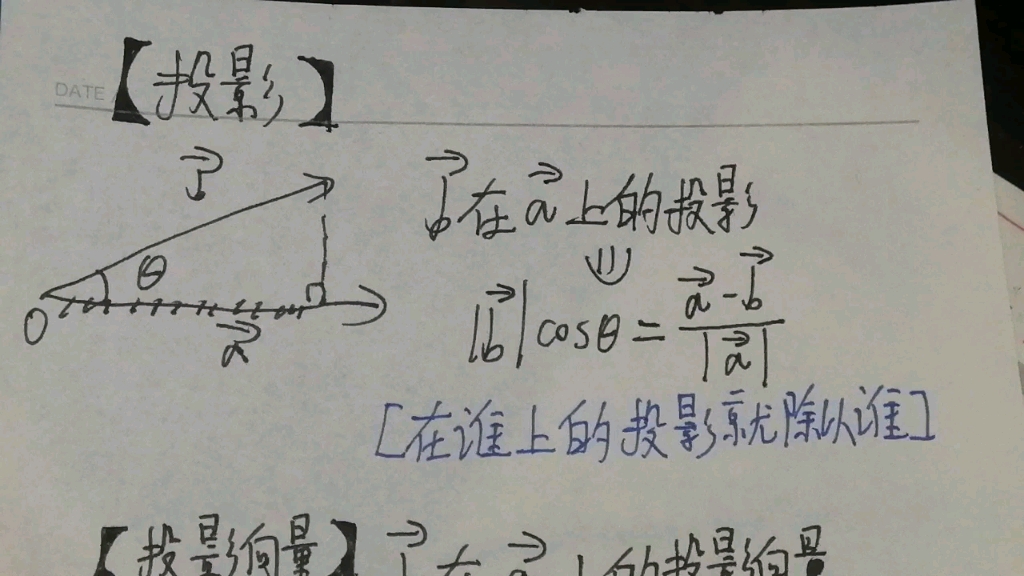 DATE
【投影】
b在a上的投影
|b|cosθ=a-b/|a|
b
θ
O
a
[在谁上的投影就除以谁]
【投影向量】b在a上的投影向量